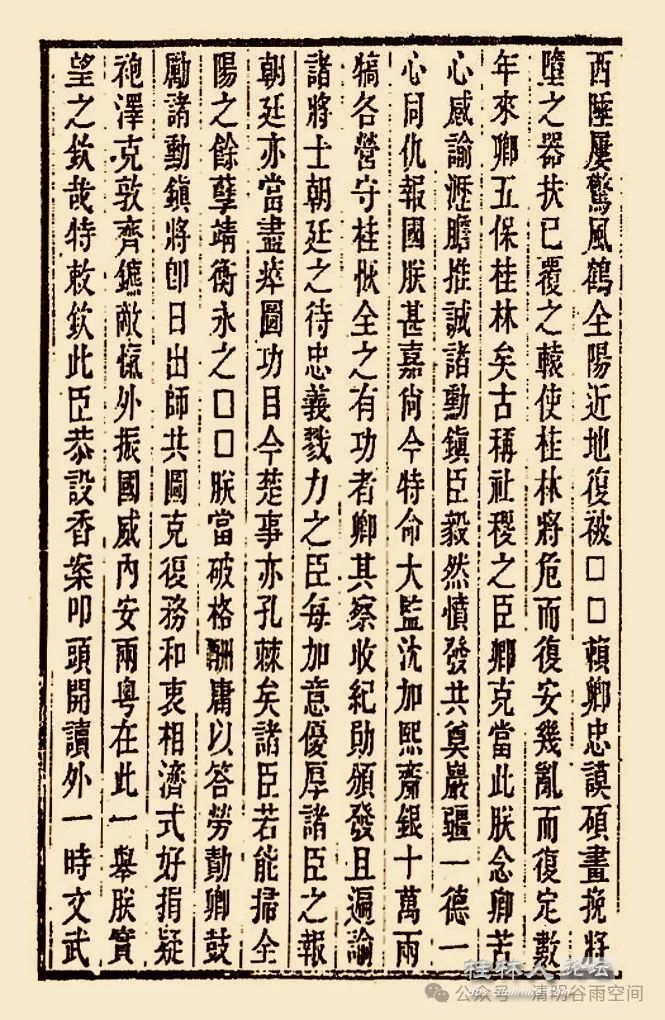 西陲屢驚風鶴全陽近地復被□□賴卿忠謨碩畫挽將
墮之器扶已覆之轅使桂林將危而復安幾亂而復定數
年來卿五保桂林矣古稱社稷之臣卿克當此朕念卿苦
心感諭瀝膽推誠諸勳鎮臣毅然憤發共奠巖疆一德一
心同仇報國朕甚嘉尚今特命大監沈加熙齎銀十萬兩
犒各營守桂恢全之有功者卿其察收紀勛頒發且遍諭
諸將士朝廷之待忠義戮力之臣每加意優厚諸臣之報
朝廷亦當盡瘁圖功目今楚事亦孔棘矣諸臣若能掃全
陽之餘孽靖衡永之□□朕當破格酬庸以答勞勩卿鼓
勵諸勳鎮將卽日出師共圖克復務和衷相濟式好捐疑
袍澤克敦齊鑣敵愾外振國威內安兩粵在此一舉朕實
望之欽哉特敕欽此臣恭設香案叩頭開讀外一時文武
桂林人论坛
公众号·清明谷雨空间